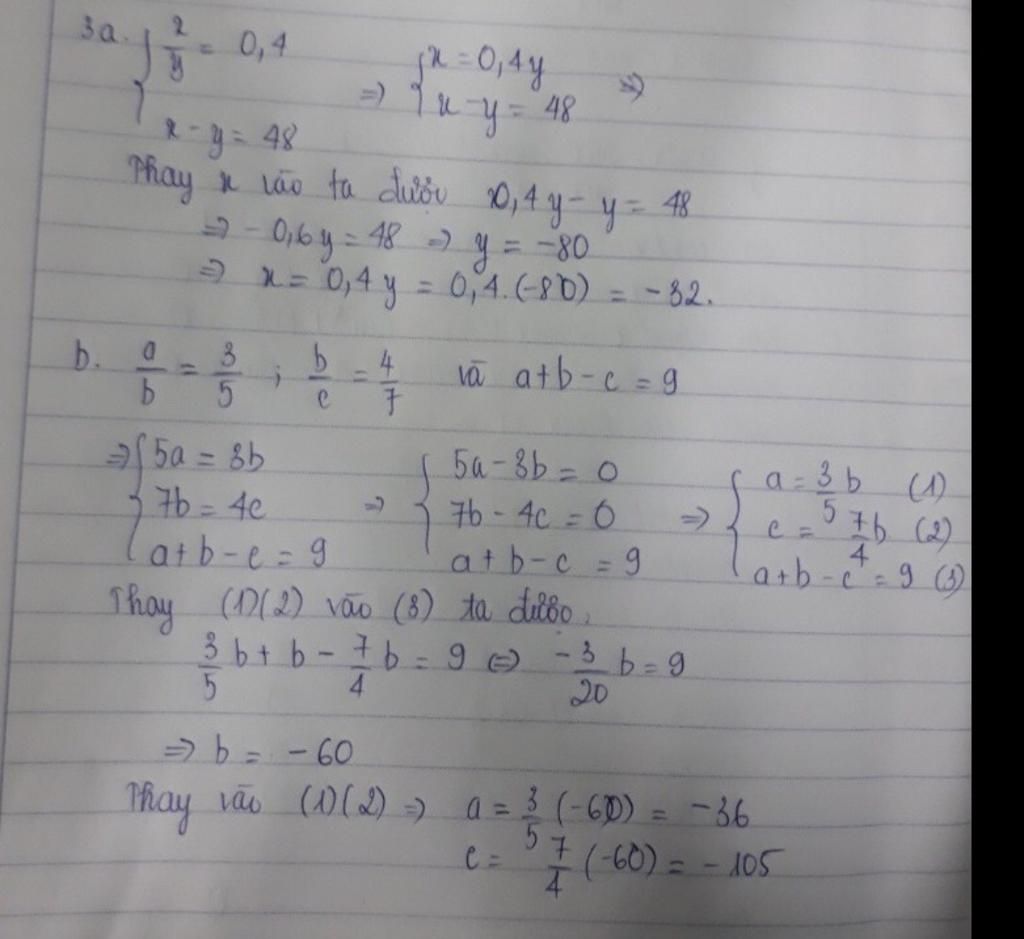 3a. { x/y = 0,4 ⇒ { x = 0,4y ⇒
x - y = 48 x - y = 48
Thay x vào ta được 0,4y - y = 48
⇒ - 0,6y = 48 ⇒ y = -80
⇒ x = 0,4y = 0,4.(-80) = -32.
b. a/b = 3/5 ; b/c = 4/7 và a+b-c = 9
⇒ { 5a = 3b ⇒ { 5a - 3b = 0 ⇒ { a = 3/5 b (1)
7b = 4c 7b - 4c = 0 c = 7/4 b (2)
a+b-c = 9 a+b-c = 9 a+b-c = 9 (3)
Thay (1)(2) vào (3) ta được,
3/5 b + b - 7/4 b = 9 ⇔ -3/20 b = 9
⇒ b = -60
Thay vào (1)(2) ⇒ a = 3/5 (-60) = -36
c = 7/4 (-60) = -105